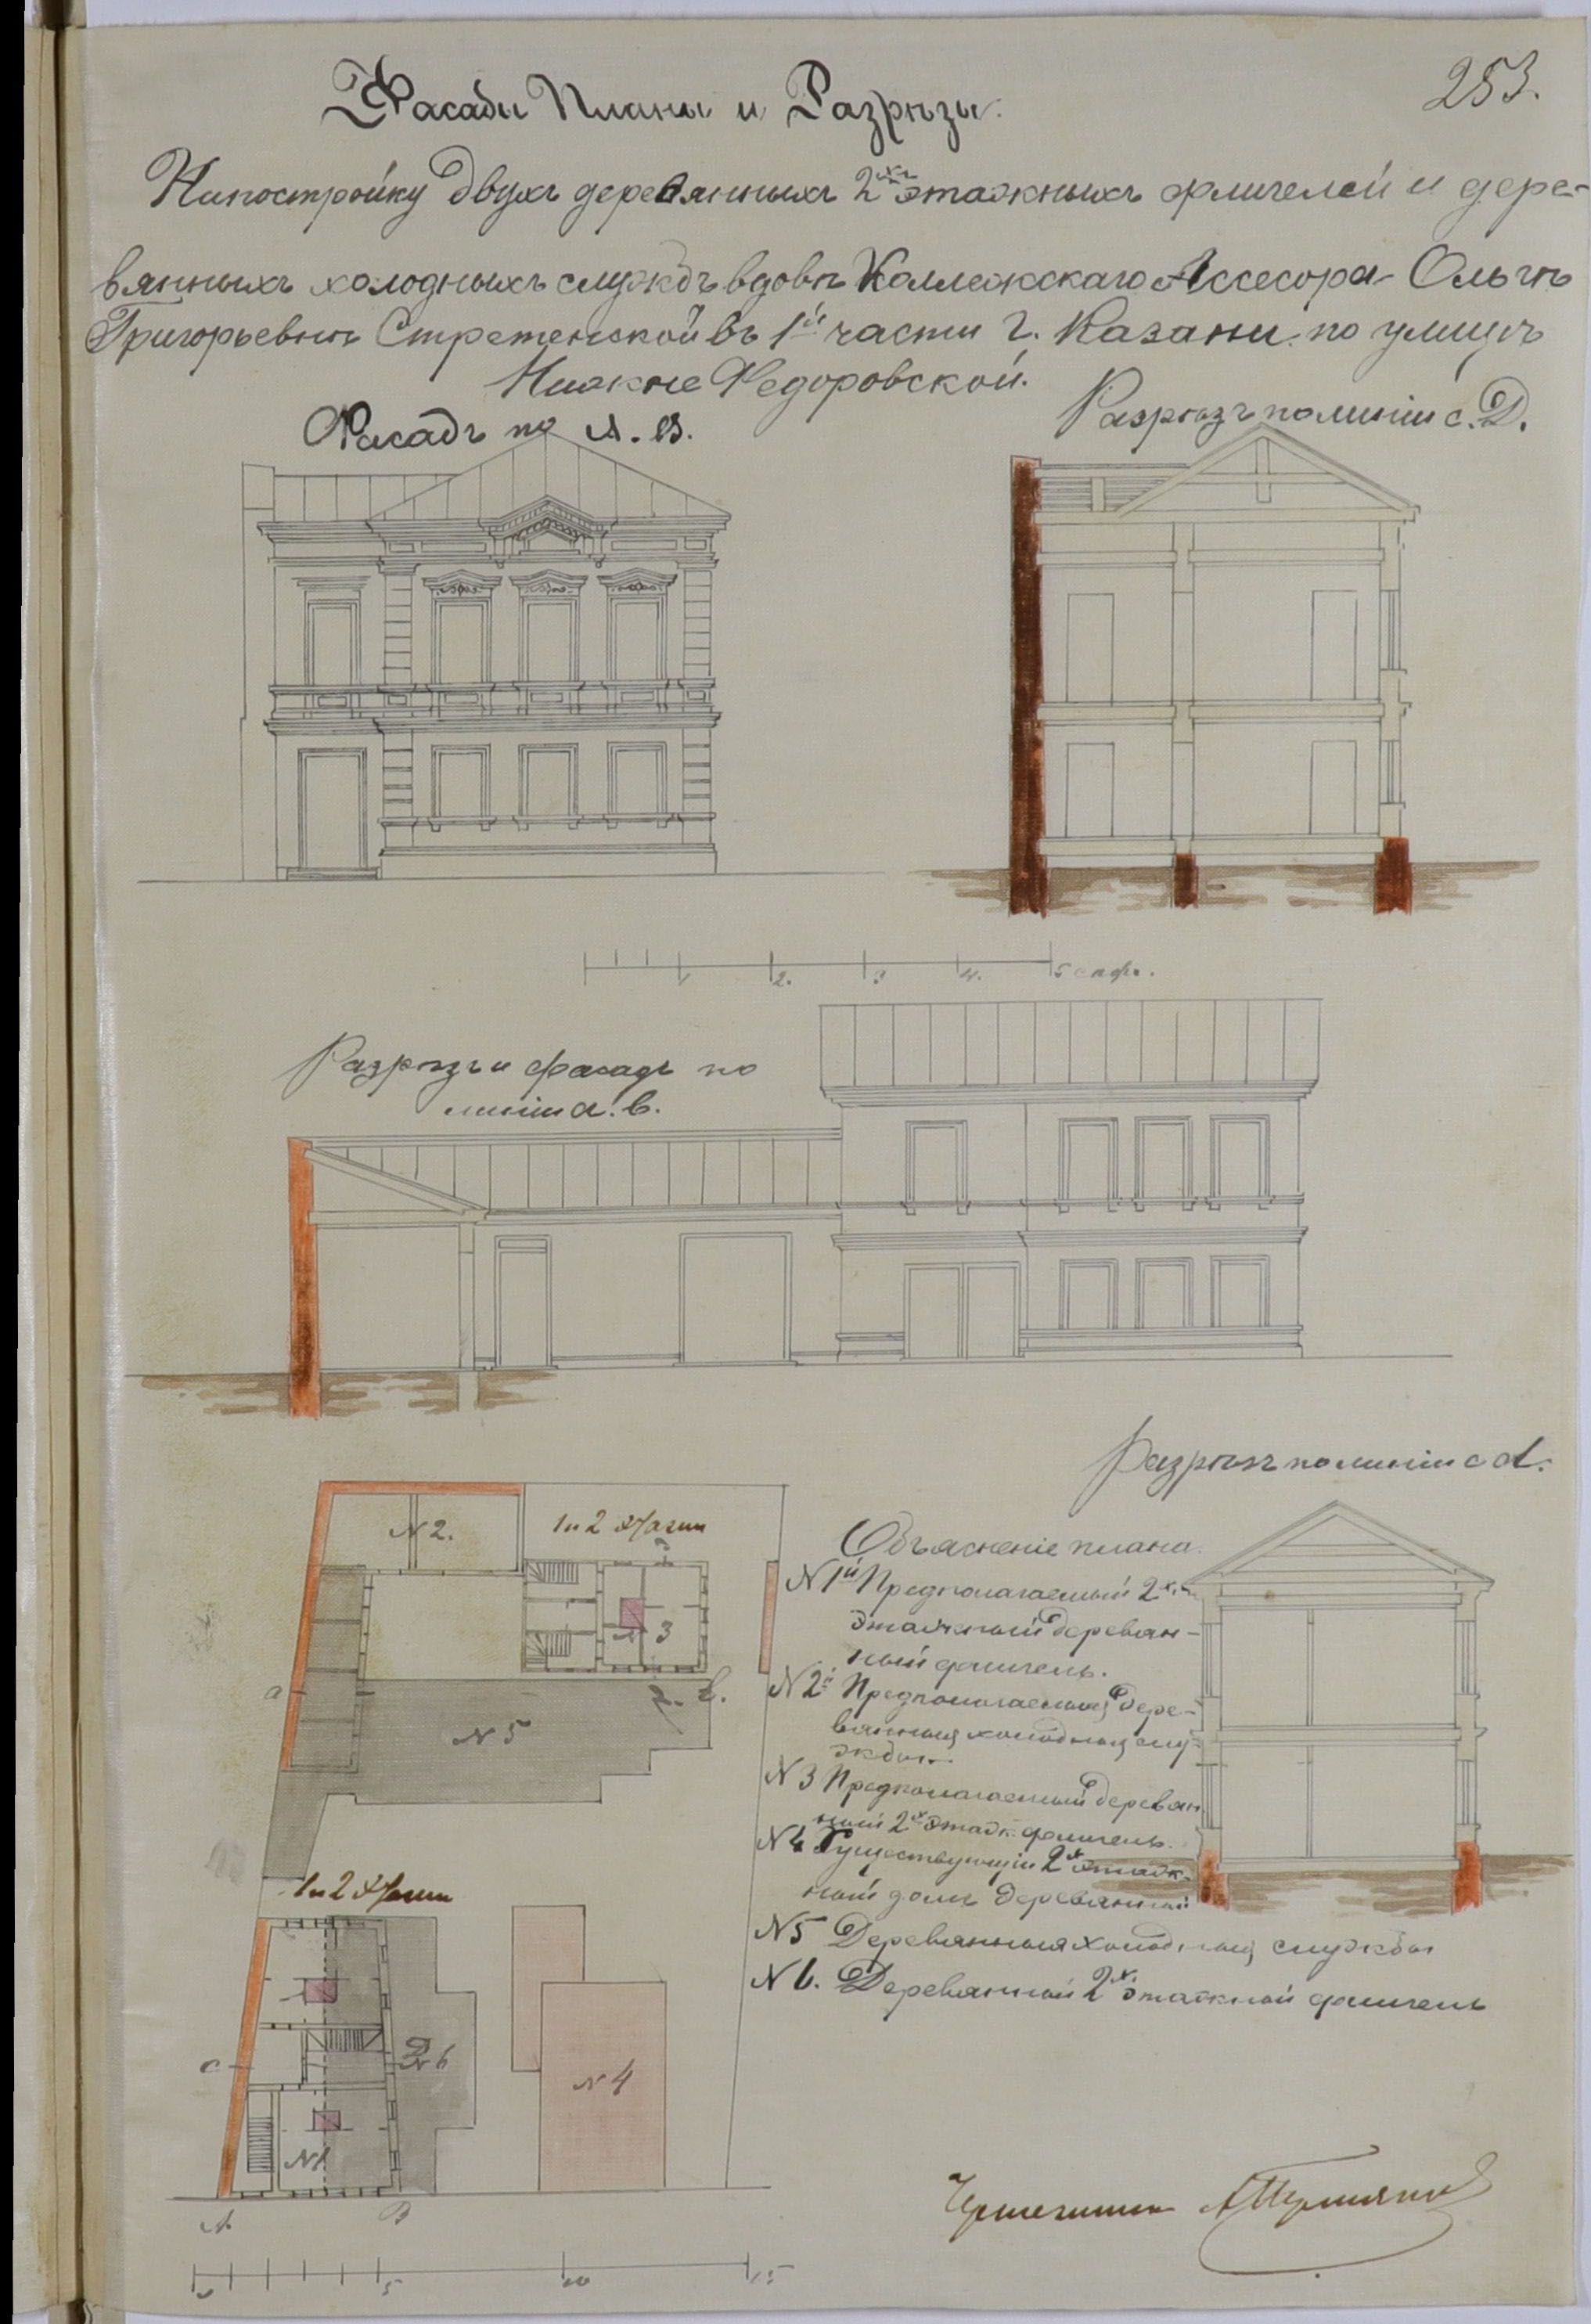 253.
Фасады Планы и Разрѣзы.
На постройку двухъ деревянныхъ 2хъ этажныхъ флигелей и дере-
вянныхъ холодныхъ службъ вдовѣ Коллежскаго Ассесора Ольгѣ
Григорьевнѣ Стретенской въ 1й части г. Казани по улицѣ
Нижне Федоровской.
Фасадъ по А. В.
Разрѣзъ по линіи С. Д.
1 2. 3 4. 5 саж.
Разрѣзъ и фасадъ по
линіи а. в.
Разрѣзъ по линіи с d.
N 2.
1 и 2 Этажи
N 3
а
в.
N 5
1 и 2 Этажи
с
Д
N 6
N 4
N 1
А.
В
0 5 10 15
Объясненіе плана.
N 1й Предполагаемый 2х.
этажный деревян-
ный флигель.
N 2й Предполагаемыя дере-
вянныя холодныя слу-
жбы.
N 3 Предполагаемый деревян
ный 2х этаж. флигель.
N 4 Существующій 2х этаж-
ный домъ деревянный
N 5 Деревянныя холодныя службы
N 6. Деревянный 2х. этажный флигель